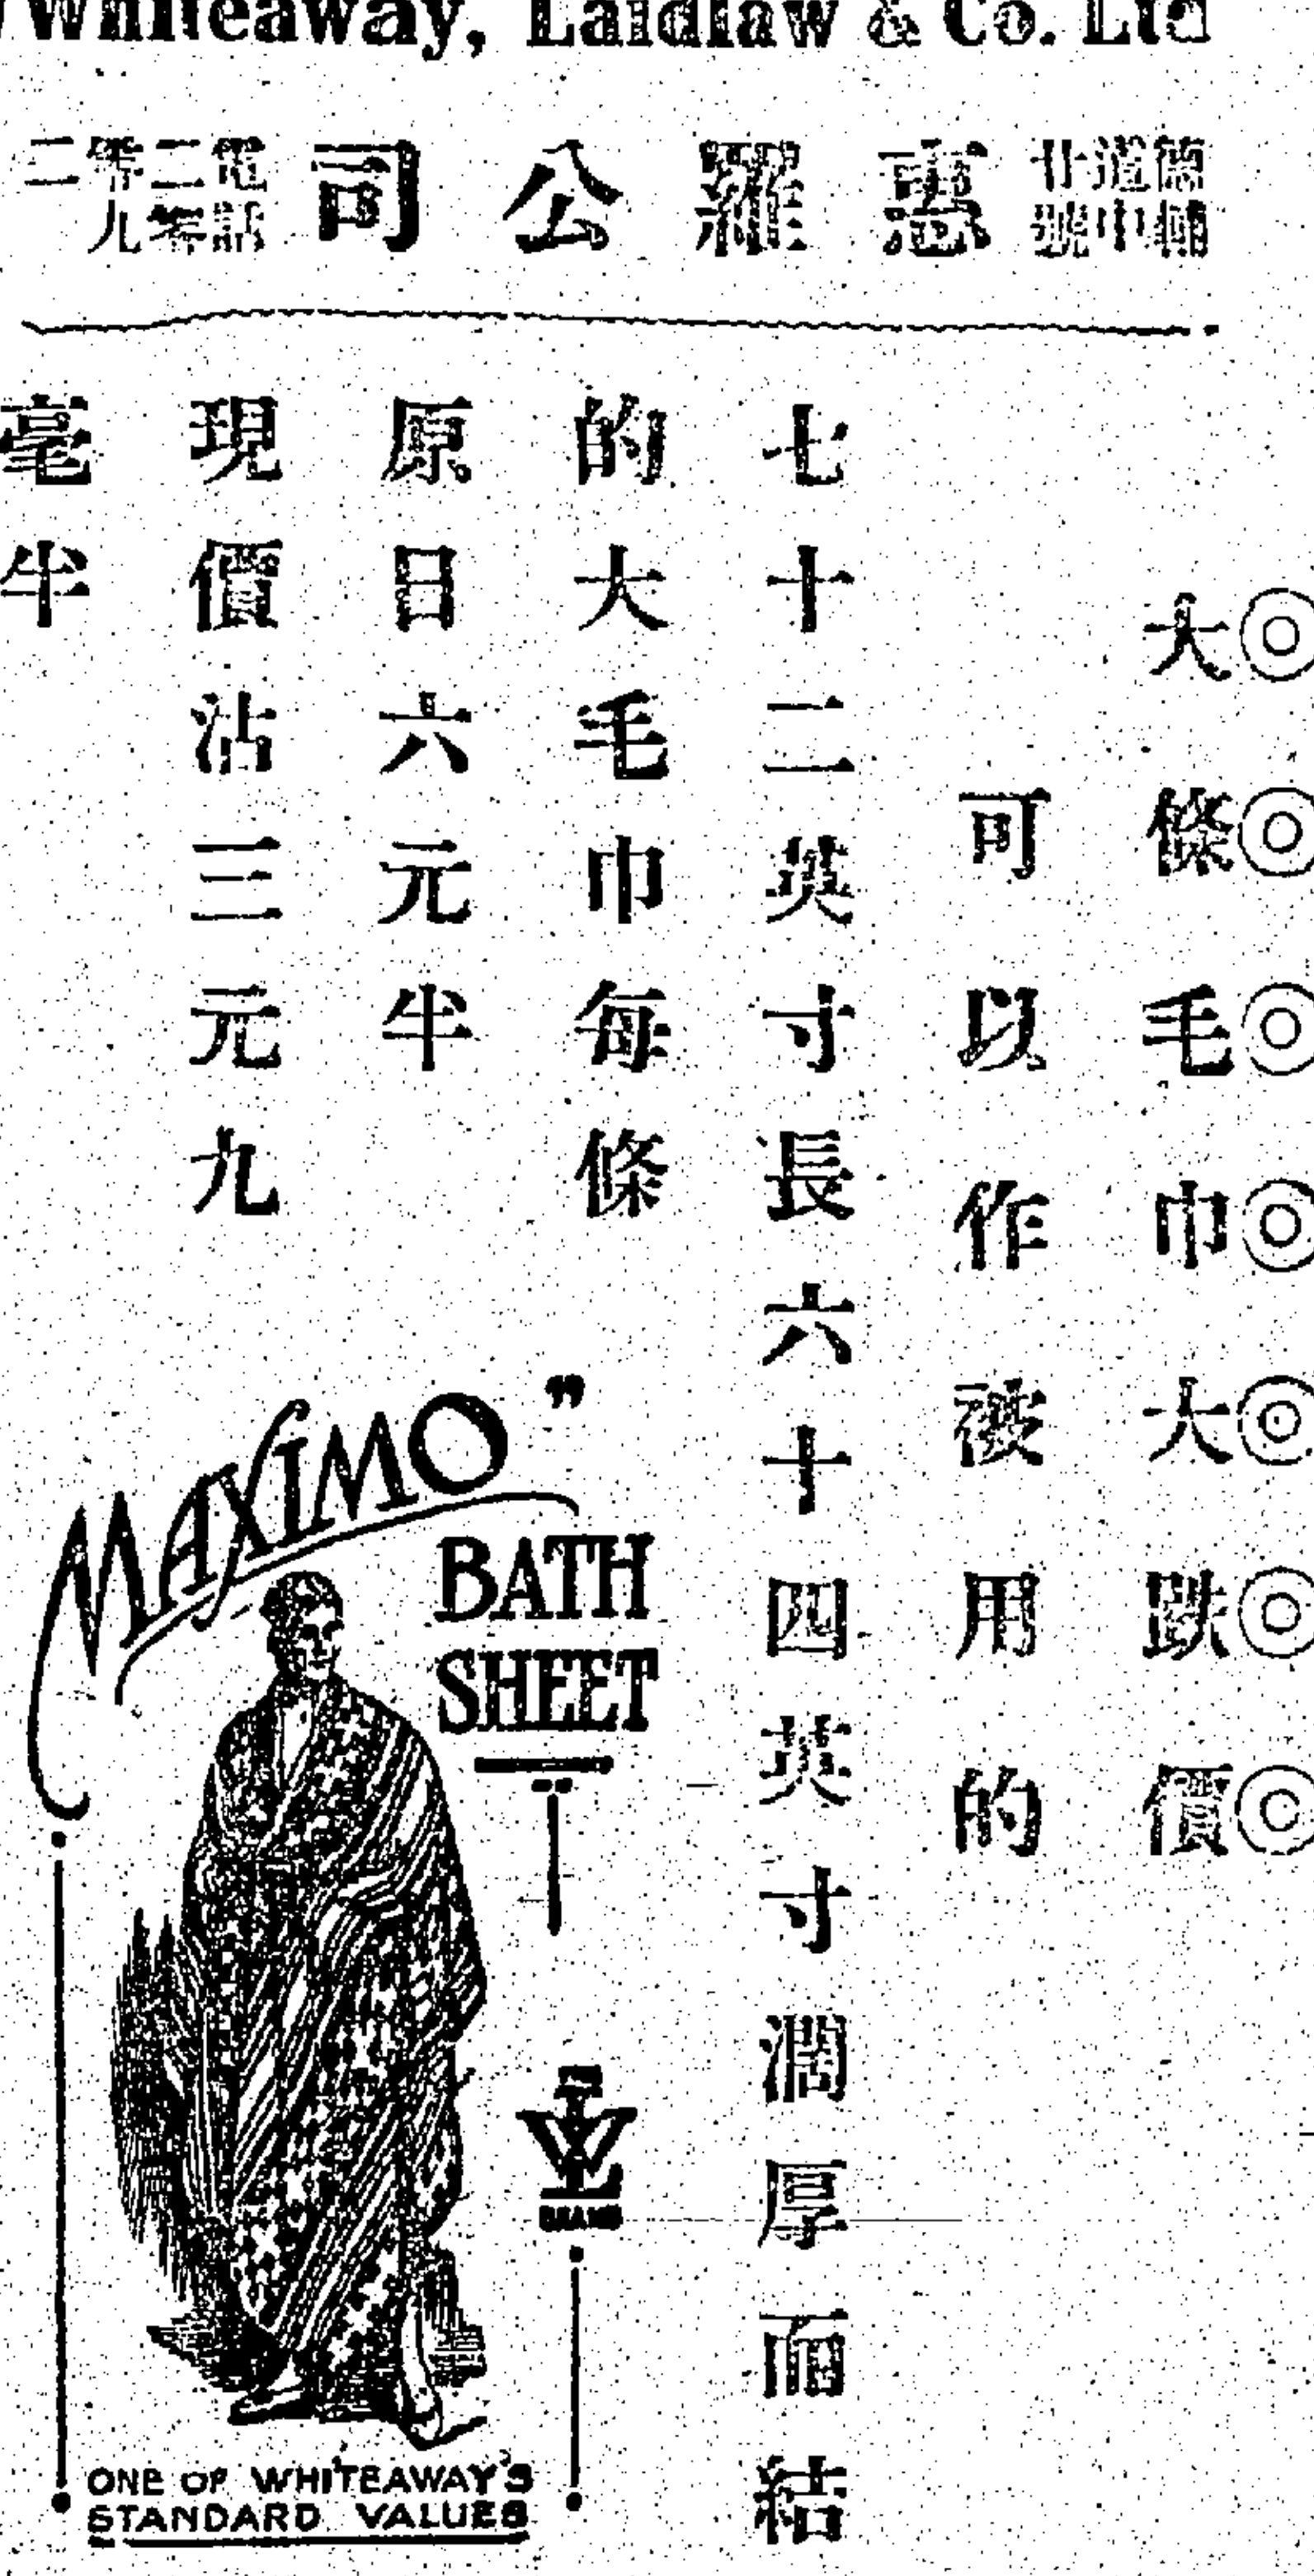 Whiteaway, Laidlaw & Co. Ltd
德輔道中廿號
惠羅公司
電話二零零九二
◎◎◎◎◎◎◎
大條毛巾大跌價
可以作被用的
七十二英寸長六十四英寸濶厚而結
的大毛巾每條
原日六元半
現價沽三元九
毫半
MAXIMO"
BATH
SHEET
WL
BRAND
ONE OF WHITEAWAY'S
STANDARD VALUES